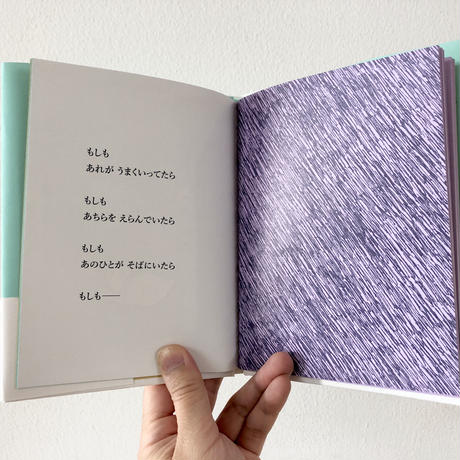 もしも
あれが うまくいってたら
もしも
あちらを えらんでいたら
もしも
あのひとが そばにいたら
もしも――